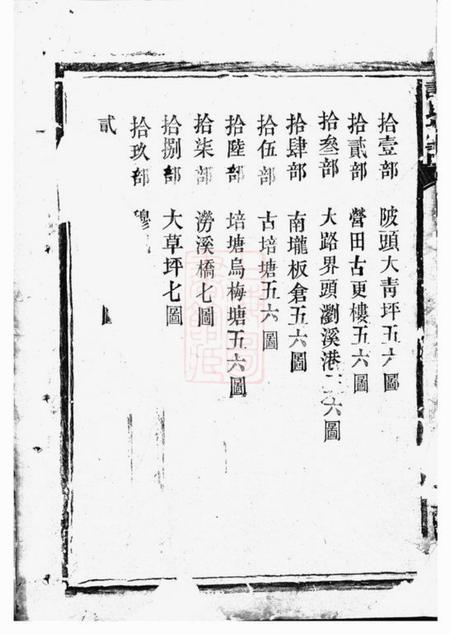 拾壹部 陂頭大靑坪五六圖
拾貳部 營田古更樓五六圖
拾叄部 大路界頭瀏溪港五六圖
拾肆部 南壠板倉五六圖
拾伍部 古培塘五六圖
拾陸部 培塘烏梅塘五六圖
拾柒部 澇溪橋七圖
拾捌部 大草坪七圖
拾玖部 穆
貳